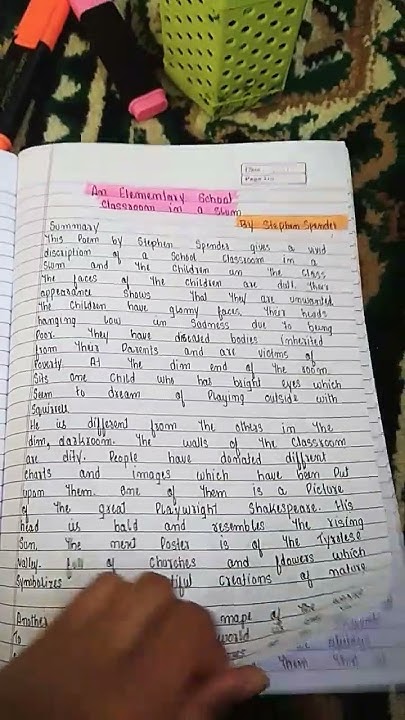 Date
Page No.
An Elementary School
Classroom in a Slum
By Stephen Spender
Summary
This Poem by Stephen Spender gives a vivid
discription of a School Classroom in a
Slum and the Children in the Class
The faces of the Children are dull. Their
appearance Shows That They are unwanted
The Children have glomy faces. Their heads
hanging low in Sadness due to being
Poor. They have diseased bodies inherited
from Their Parents and are victims of
Poverty At The dim end of The room
Sits one Child who has bright eyes which
Seem to dream of Playing outside with
Squirrels
He is different from The others in The
dim, darkroom. The walls of The Classroom
are dity. People have donated diffrent
Charts and images which have been Put
upon Them. One of Them is a Picture
of The great Playwright Shakespeare. His
head is bald and resembles The rising
Sun. The next Poster is of The Tyrolese
Valley. full of Churches and flowers which
Symbolizes Creations of nature
Another mape of The
To world
Them That